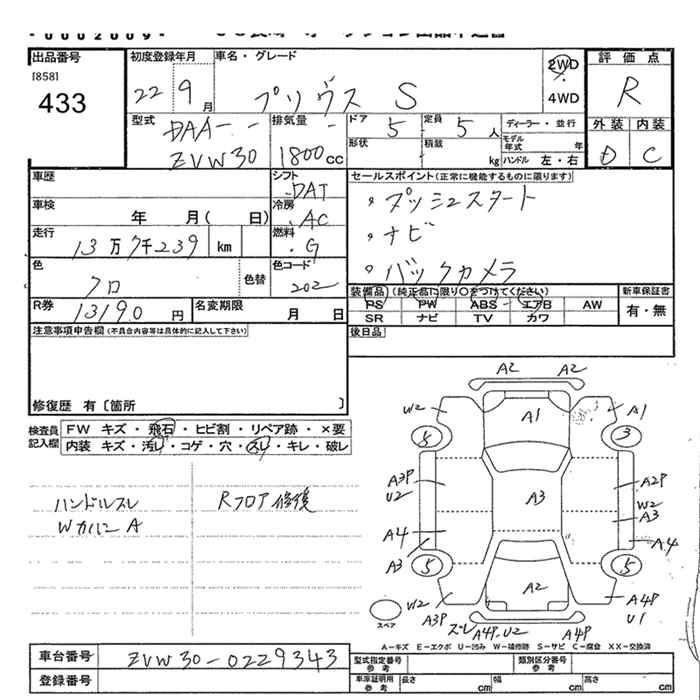 -0002009*
出品番号
[858]
433
初度登録年月
22年 9月
車名・グレード
プリウス S
2WD
4WD
評価点
R
型式
DAA-
ZVW30
排気量
1800cc
ドア
5
定員
5人
形状
積載
kg
ディーラー・並行
モデル年式 年
ハンドル 左・右
外装 内装
D C
車歴
車検
年 月( 日)
走行
13万7千239km
色
クロ
色替
シフト
DAT
冷房
AC
燃料
G
色コード
202
セールスポイント(正常に機能するものに限ります)
・プッシュスタート
・ナビ
・バックカメラ
R券
13190円
名変期限
月 日
装備品(純正品に限り○をつけてください)
PS PW ABS エアB AW
SR ナビ TV カワ
新車保証書
有・無
後日品
注意事項申告欄(不具合内容等は具体的に記入して下さい)
修復歴 有〔箇所 〕
検査員記入欄
FW キズ・飛石・ヒビ割・リペア跡・×要
内装 キズ・汚レ・コゲ・穴・スレ・キレ・破レ
ハンドルスレ
Wカバー A
Rフロア修復
A2 A2
W2 A1 A1
5 3
A3P
U2
A3
A2P
W2
A3
A4
A3
A4
5 5
W2
A3P
A2
A4P
U1
スペア
スレ A4P U2 A4P
A-キズ E-エクボ U-凹み W-補修跡 S-サビ C-腐食 XX-交換済
車台番号
ZVW30-0229343
登録番号
型式指定番号
参考
類別区分番号
参考
車庫証明用
参考
長さ cm
幅 cm
高さ cm